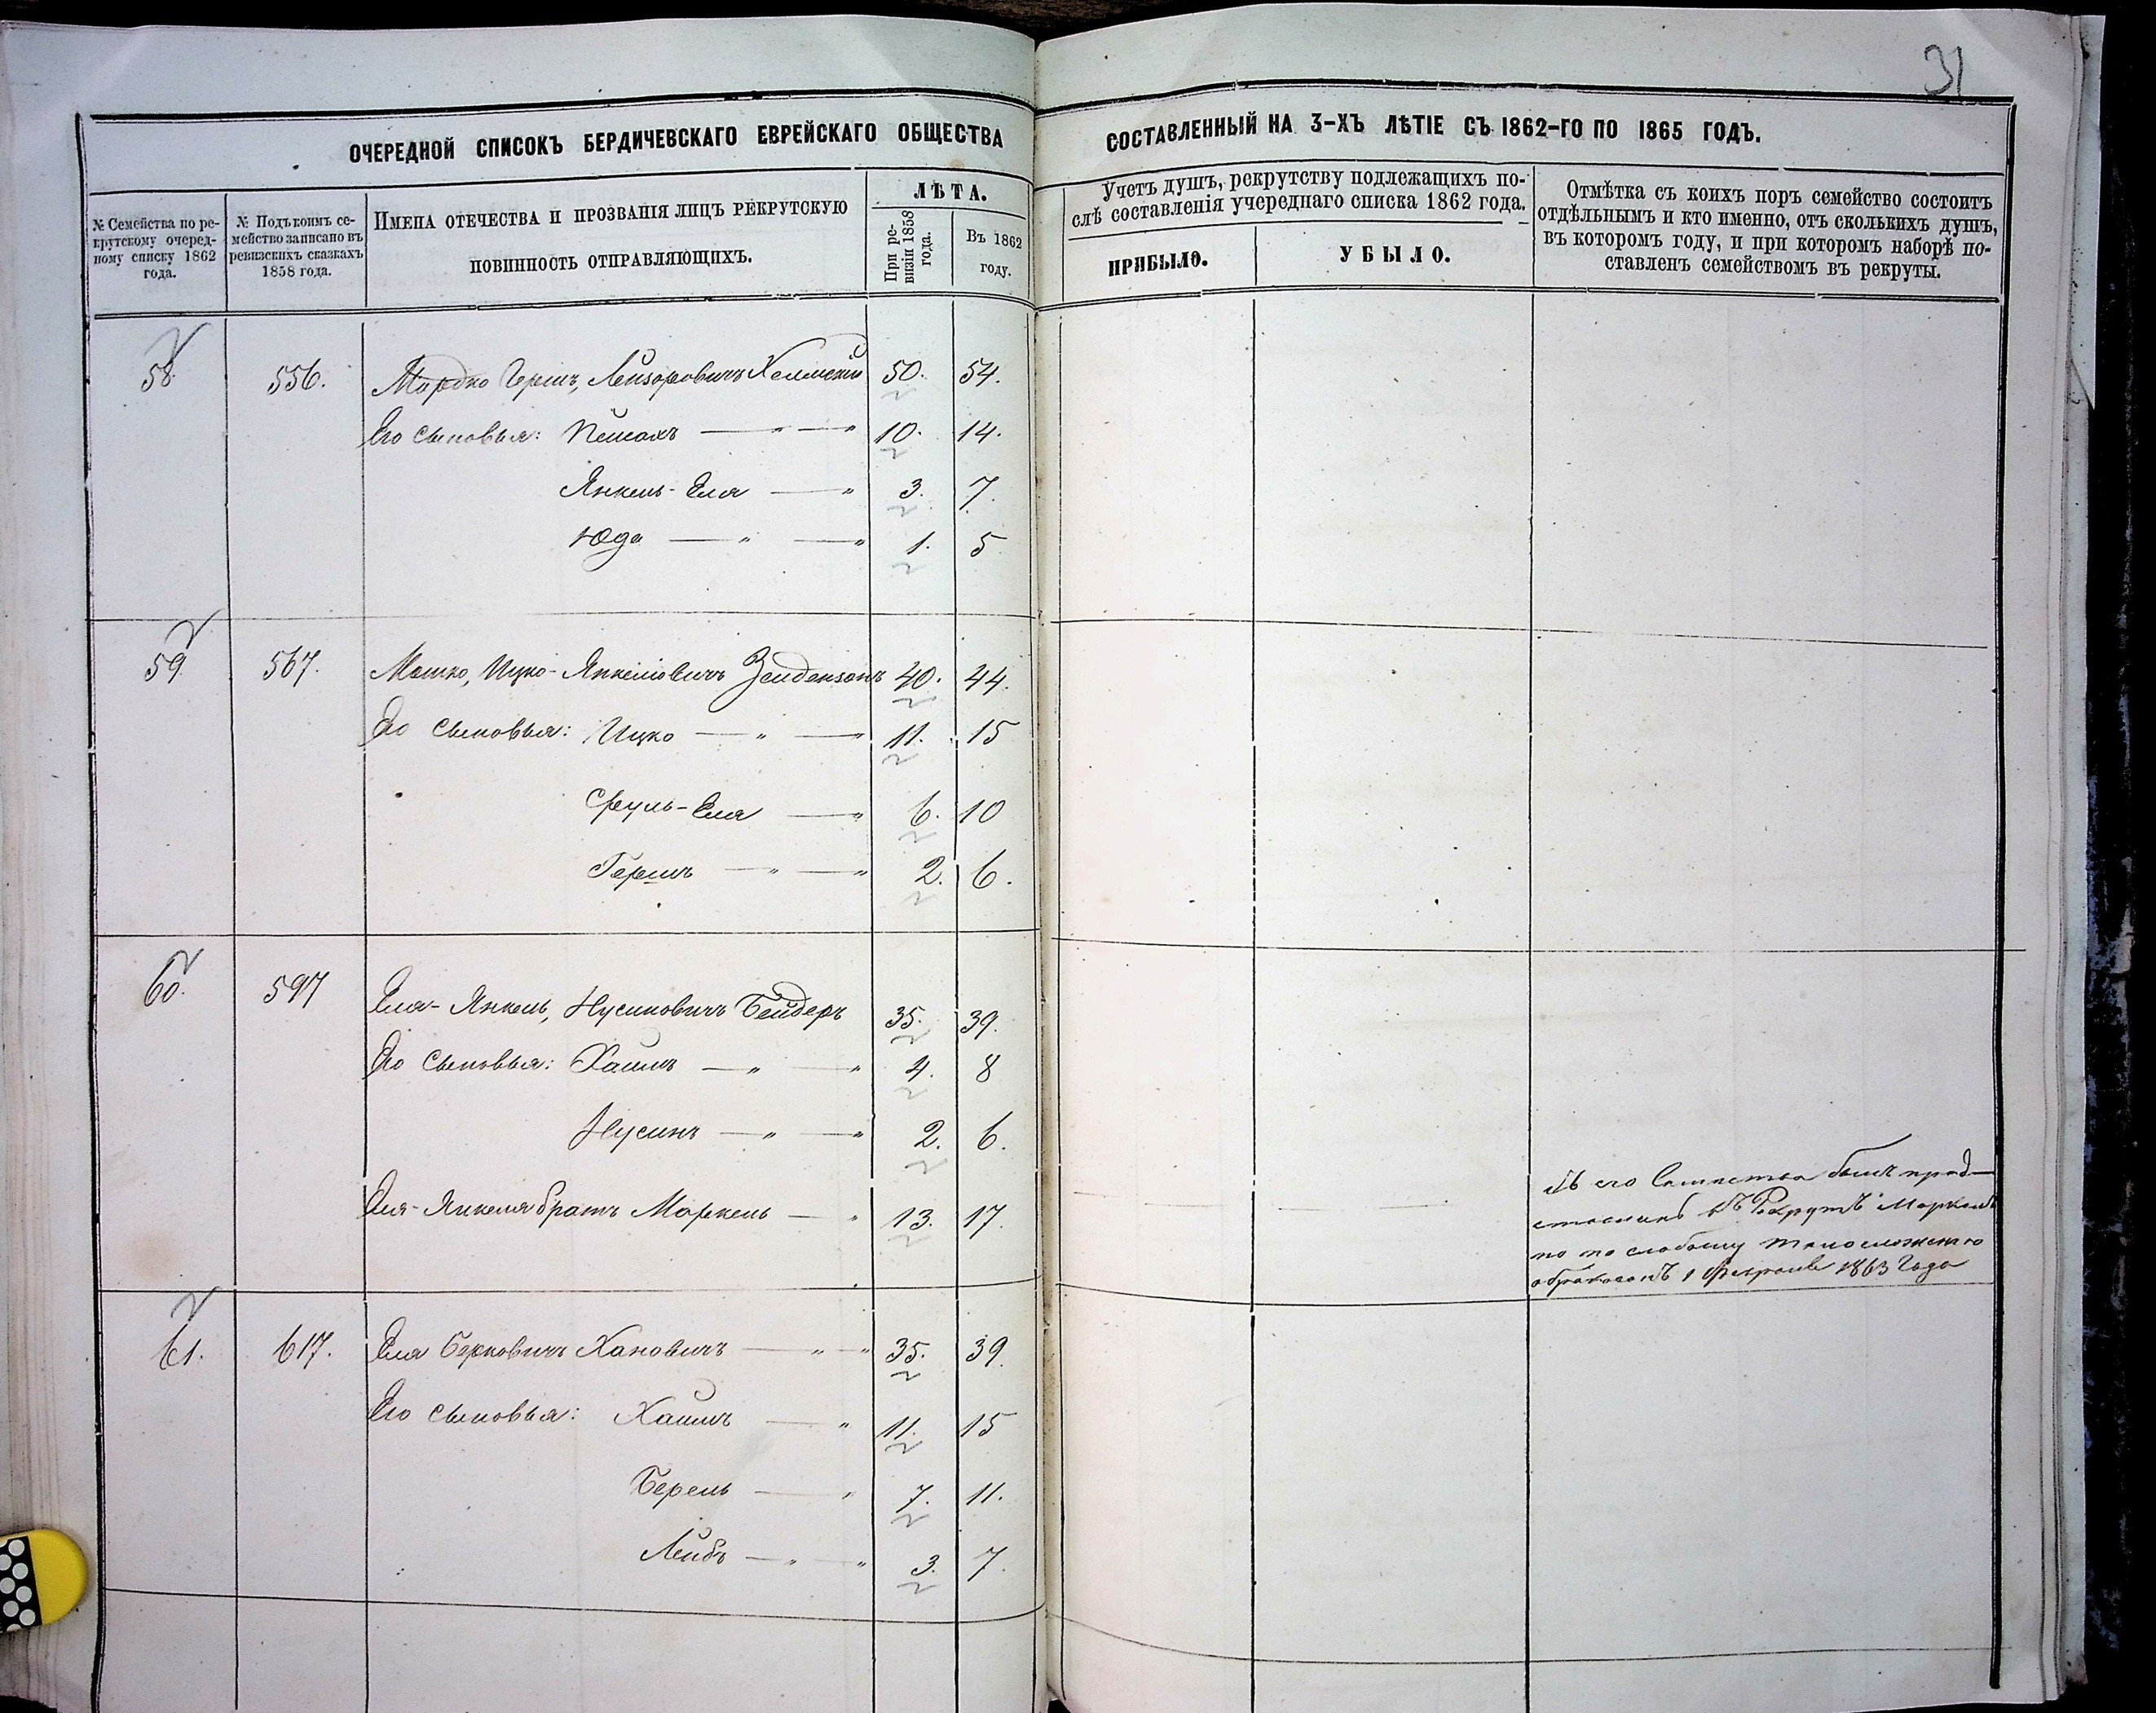 31
ОЧЕРЕДНОЙ СПИСОКЪ БЕРДИЧЕВСКАГО ЕВРЕЙСКАГО ОБЩЕСТВА СОСТАВЛЕННЫЙ НА 3-ХЪ ЛѢТІЕ СЪ 1862-ГО ПО 1865 ГОДЪ.
№ Семейства по ре-
крутскому очеред-
ному списку 1862
года.
№ Подъ коимъ се-
мейство записано въ
ревизскихъ сказкахъ
1858 года.
ИМЕНА ОТЕЧЕСТВА И ПРОЗВАНІЯ ЛИЦЪ РЕКРУТСКУЮ
ПОВИННОСТЬ ОТПРАВЛЯЮЩИХЪ.
ЛѢТА.
При ре-
визіи 1858
года.
Въ 1862
году.
Учетъ душъ, рекрутству подлежащихъ по-
слѣ составленія учереднаго списка 1862 года.
ПРИБЫЛО.
УБЫЛО.
Отмѣтка съ коихъ поръ семейство состоитъ
отдѣльнымъ и кто именно, отъ сколькихъ душъ,
въ котором году, и при котором наборѣ по-
ставленъ семействомъ въ рекруты.
58. 556. Мордко Гершъ, Лейзоровичъ 50. 54.
Его сыновья: Пейсахъ — " — " 10. 14.
Янкель-Еля — " 3. 7.
Юда — " — " 1. 5
59. 567. Мошко, Ицко-Янкелiовичъ Зейдензонъ 40. 44.
Его сыновья: Ицко — " — " 11. 15
Сруль-Еля — " 6. 10
Гершъ — " — " 2. 6.
60. 597 Еля-Янкель, Нусиновичъ Бейдеръ 35. 39.
Его сыновья: Хаимъ — " — " 4. 8
Нусинъ — " — " 2. 6.
Еля-Янкеля братъ Моркель — " 13. 17.
Съ его Семейства былъ пред-
ставленъ въ Рекрутъ Моркель
но по слабому телосложению
обракованъ 1 Февраля 1863 Года
61. 617. Еля Берковичъ Хановичъ — " — " 35. 39.
Его сыновья: Хаимъ — " 11. 15
Берель — " 7. 11.
Лейбъ — " — " 3. 7.